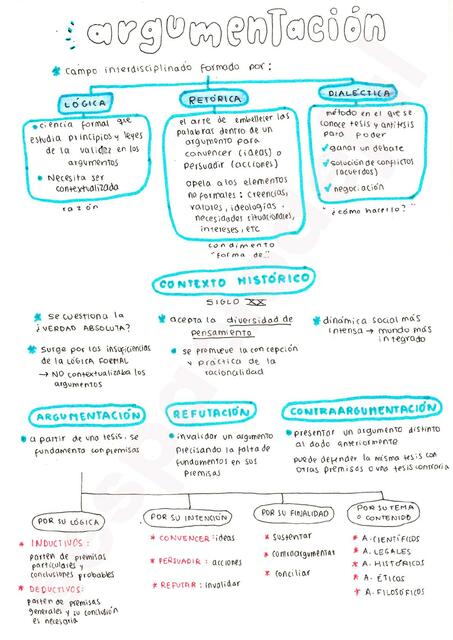 argumentación
* campo interdisciplinado formado por:
LÓGICA
• ciencia formal que
estudia principios y leyes
de la validez en los
argumentos
• Necesita ser
contextualizada
razón
RETÓRICA
el arte de embellecer las
palabras dentro de un
argumento para
convencer (ideas) o
persuadir (acciones)
apela a los elementos
no formales: creencias,
valores, ideologías,
necesidades situacionales,
intereses, etc
condimento
"forma de..."
DIALÉCTICA
método en el que se
conoce tesis y antítesis
para poder
✓ ganar un debate
✓ solución de conflictos
(acuerdos)
✓ negociación
"¿cómo hacerlo?"
CONTEXTO HISTÓRICO
SIGLO XX
* se cuestiona la
¿VERDAD ABSOLUTA?
* Surge por las insuficiencias
de la LÓGICA FORMAL
→ NO contextualizaba los
argumentos
* acepta la diversidad de
pensamiento
• se promueve la concepción
y práctica de la
racionalidad
* dinámica social más
intensa → mundo más
integrado
ARGUMENTACIÓN
• a partir de una tesis, se
fundamenta con premisas
REFUTACIÓN
• invalidar un argumento
precisando la falta de
fundamentos en sus
premisas
CONTRAARGUMENTACIÓN
• presentar un argumento distinto
al dado anteriormente
puede defender la misma tesis con
otras premisas o una tesis contraria
POR SU LÓGICA
* INDUCTIVOS:
parten de premisas
particulares y
conclusiones probables
* DEDUCTIVOS:
parten de premisas
generales y su conclusión
es necesaria
POR SU INTENCIÓN
* CONVENCER: ideas
* PERSUADIR: acciones
* REFUTAR: invalidar
POR SU FINALIDAD
* sustentar
* contraargumentar
* conciliar
POR SU TEMA
O CONTENIDO
* A. CIENTÍFICOS
* A. LEGALES
* A. HISTÓRICOS
* A. ÉTICOS
* A. FILOSÓFICOS